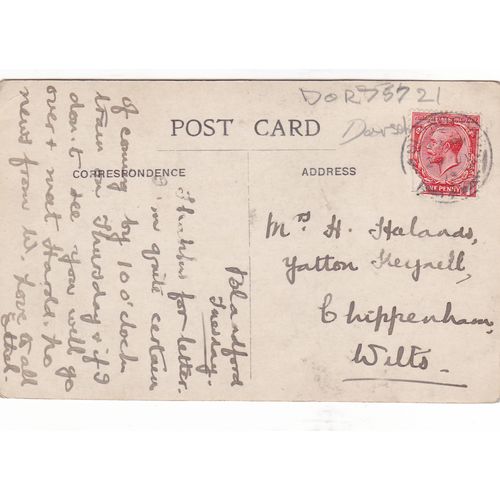 DOR 73721
POST CARD
CORRESPONDENCE
ADDRESS
ONE PENNY
Mrs H.
Yatton Keynell,
Chippenham,
Wilts.
Blandford
Tuesday.
Thanks for letter.
I'm quite certain
of coming by 10 o'clock
train on Thursday & if I
don't see you will go
over & meet Harold. No
news from W. Love to all
Ethel.